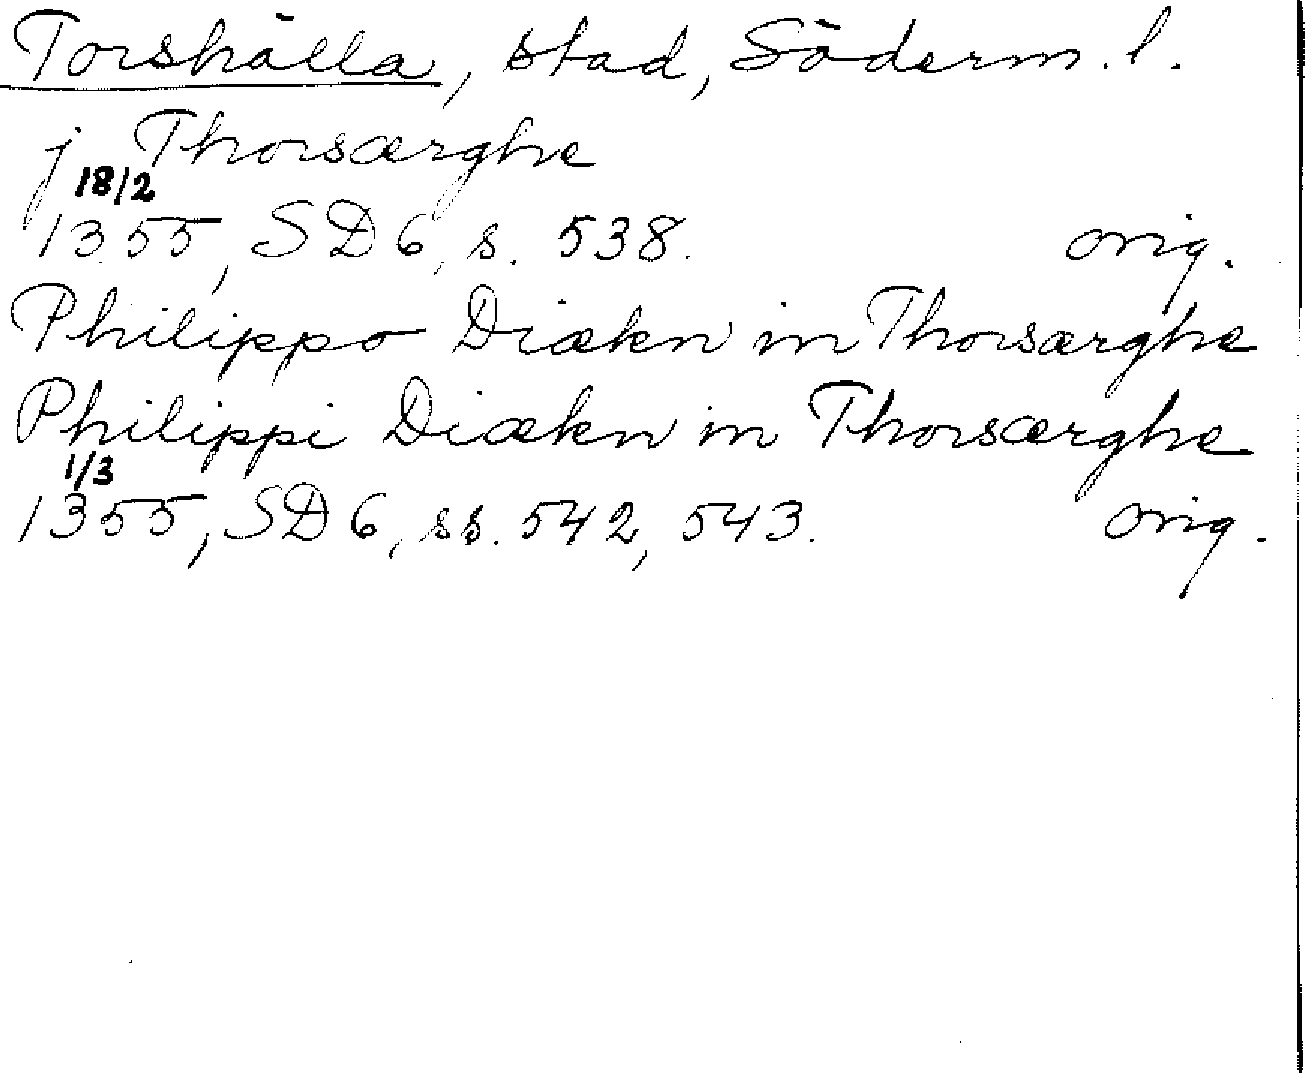 Torshälla, stad, Söderm. l.
j Thorsærghe
18/2
1355, SD 6, s. 538. orig.
Philippo Diækn in Thorsærghe
Philippi Diækn in Thorsærghe
1/3
1355, SD 6, ss. 542, 543. orig.